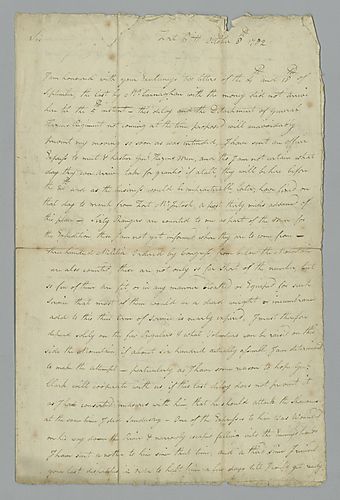 Sir Fort Pitt October 5th 1782
I am honored with your Excellency's two letters of the 4th and 18th of
September, the last by Mr Cunningham with the money did not arrive
here till the 2d instant — this delay and the Detachment of General
Hazens Regiment not coming at the time proposed will unavoidably
prevent my moving so soon as was intended. I have sent an officer
Express to meet & hasten Genl Hazens men, and tho I am not certain what
day they can arrive take for granted if alive, they will be here before
the and as the moving would be late, have fixed on
that day to march from Fort McIntosh, a post thirty miles advanced of
this place — Sixty Rangers are counted to me as part of the men for
the Expedition tho I am not yet informed when they are to come from —
three hundred Militia ordered by Congress from below the Mountain
are also counted, these are not only so far short of the number, but
so few of them are fit or in any manner Cloathed or Equiped for such
Service that most of them would be a dead weight or incumbrance
add to this their term of Service is nearly expired. I must therefore
depend solely on the few Regulars & what Volunteers can be raised on this
side the Mountain if about six hundred actually assemble I am determined
to make the attempt — particularly as I have some reason to hope Genl
Clark will cooperate with us if this last delay does not prevent it
as I had concerted measures with him, that he should attack the Shawanese
at the same time I did Sandusky — One of the Expresses to him was wounded
on his way down the River & narrowly escaped falling into the Enemy's hands
I have sent another to him since that time, and a third since I received
your last dispatches in order to halt him a few days till I could get ready